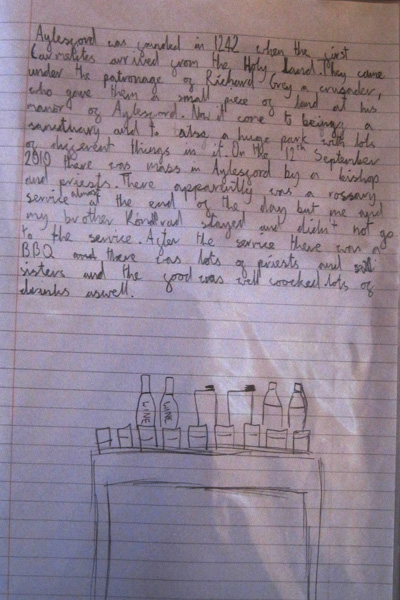 Aylesford was founded in 1242 when the first
Carmelites arrived from the Holy Land. They came
under the patronage of Richard Grey a crusader,
who gave them a small piece of land at his
manor of Aylesford. Now it come to being a
sanctuary and to also a huge park with lots
of different things in it. On the 12th September
2010 there was mass in Aylesford by a bishop
and priests. There apparently was a rossary
service almost at the end of the day but me and
my brother stayed and didn't not go
to the service. After the service there was a
BBQ and there was lots of priests and
sisters and the food was well coocked. lots of
drinks aswell.
WINE WINE